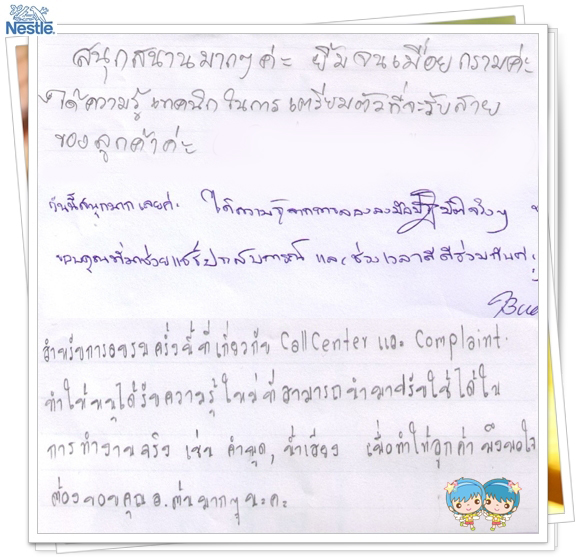 Nestlé
สนุกสนานมากๆ ค่ะ ยิ้มจนเมื่อยกรามค่ะ
ได้ความรู้ เทคนิค ในการ เตรียมตัวที่จะรับสาย
ของลูกค้าค่ะ
วันนี้สนุกมาก เลยค่ะ ได้ความรู้จากการลองลงมือปฏิบัติจริงๆ
ขอบคุณที่มาช่วยแชร์ประสบการณ์ และช่วงเวลาดีดีร่วมกันค่ะ
สำหรับการอบรมครั้งนี้ที่เกี่ยวกับ Call Center และ Complaint
ทำให้หนูได้รับความรู้ใหม่ที่สามารถนำมาปรับใช้ได้ใน
การทำงานจริง เช่น คำพูด, น้ำเสียง เพื่อทำให้ลูกค้าพึงพอใจ
ต้องขอบคุณ อ.ต้นมากๆนะคะ